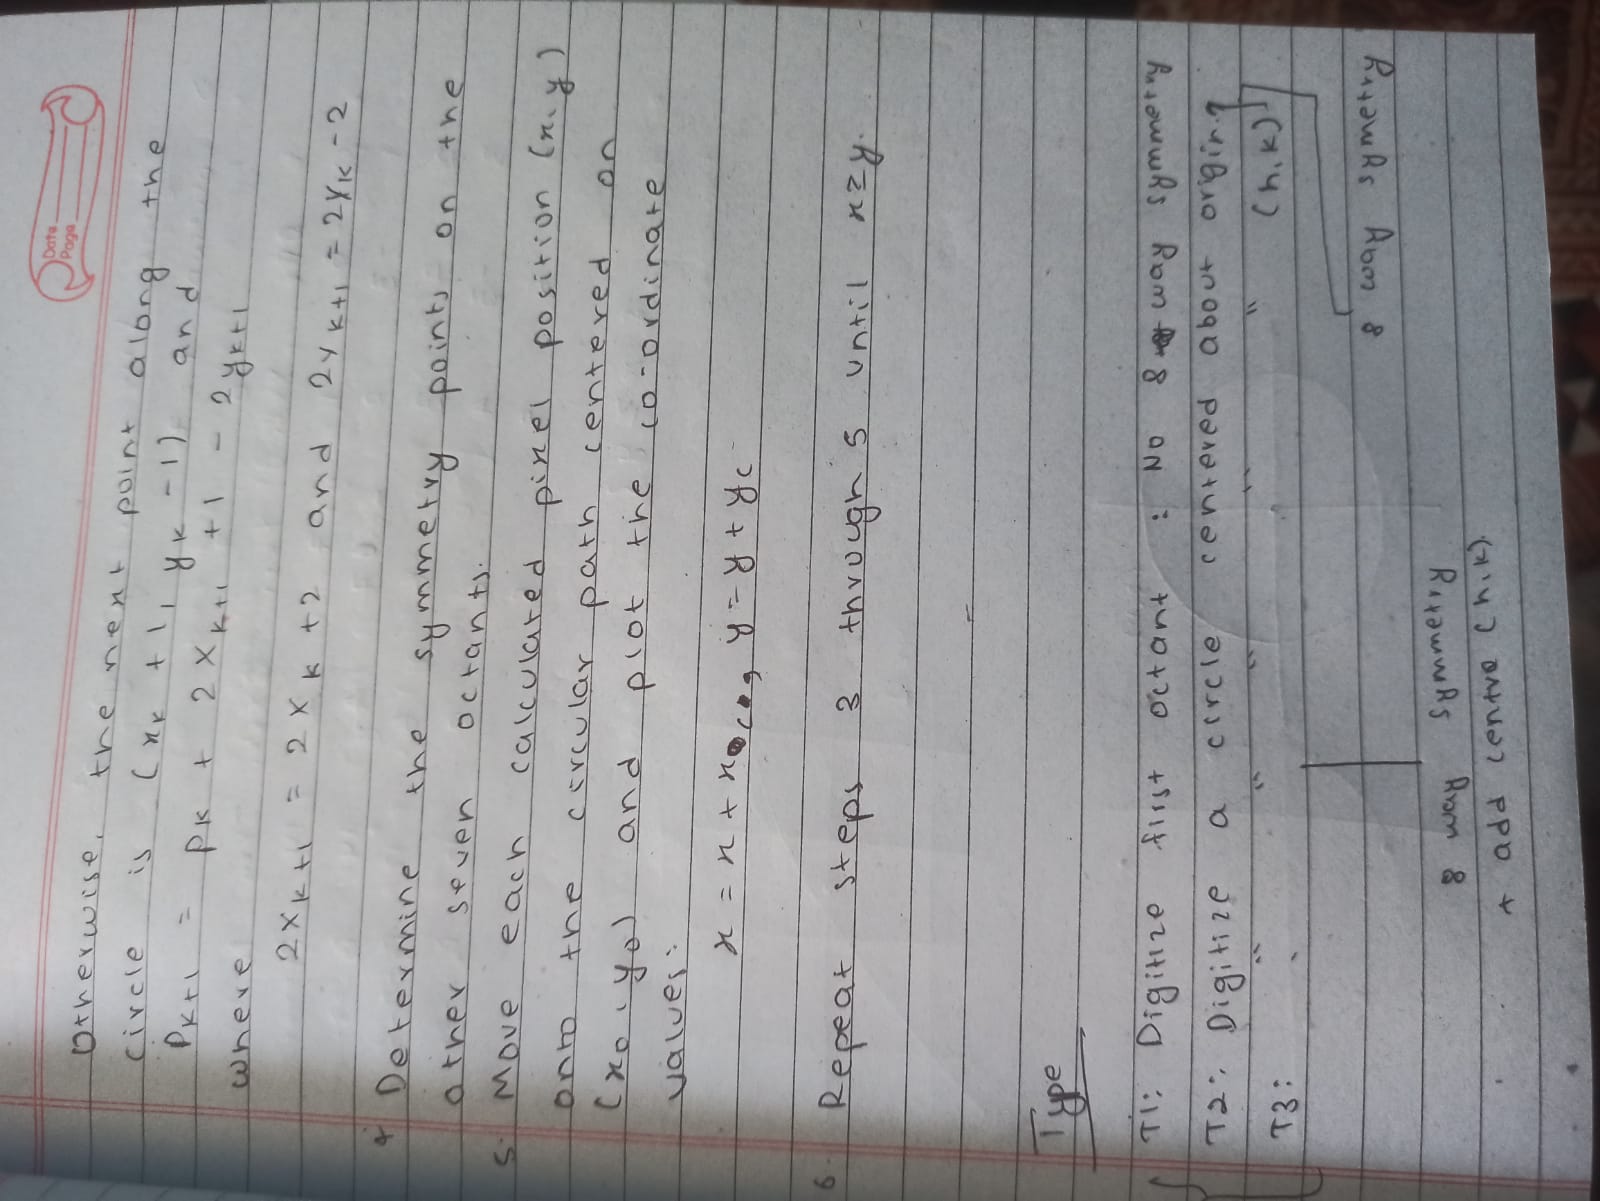 Date
Page
Otherwise, the next point along the
circle is (xk + 1, yk - 1) and
Pk+1 = pk + 2xk+1 + 1 - 2yk+1
where
2xk+1 = 2xk + 2 and 2yk+1 = 2yk - 2
4. Determine the symmetry points on the
other seven octants.
5. Move each calculated pixel position (x, y)
onto the circular path centered on
(x0, y0) and plot the co-ordinate
values:
x = x + xc, y = y + yc
6. Repeat steps 3 through 5 until x ≥ y.
Type
T1: Digitize first octant : No 8 way symmetry
T2: Digitize a circle centered about origin
T3: " " " " " (h,k)
8 way symmetry
8 way symmetry
+ add centre (h,k).